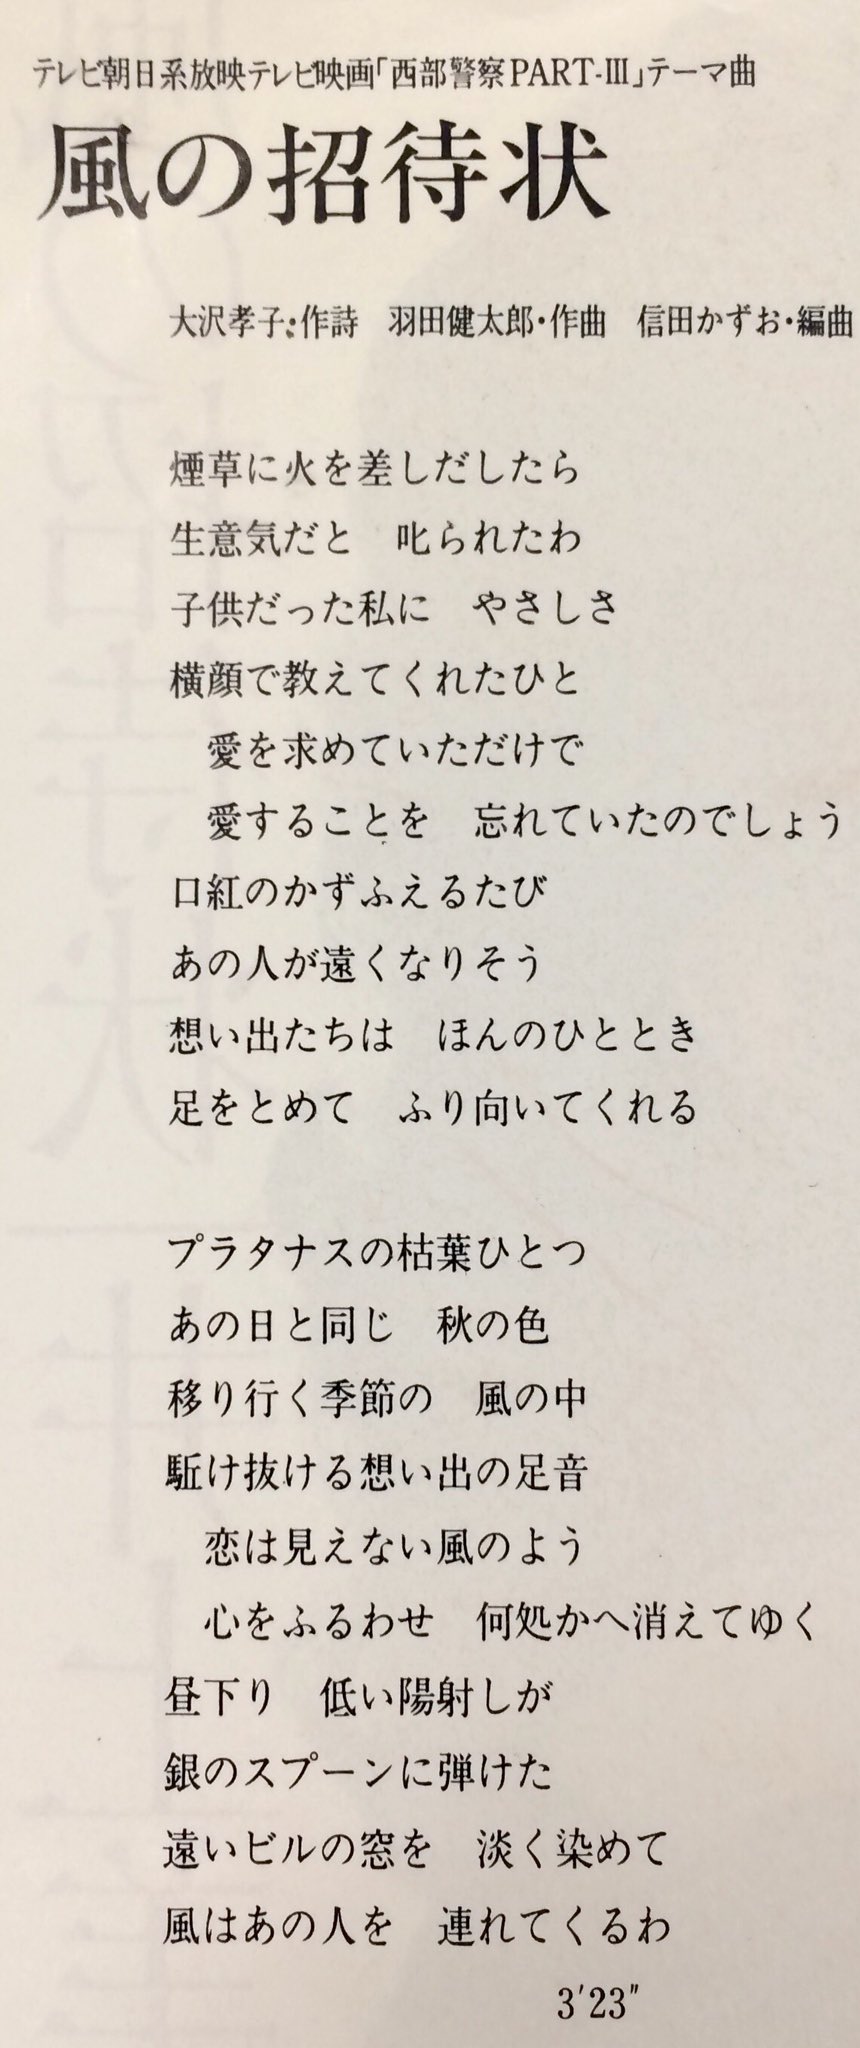 テレビ朝日系放映テレビ映画「西部警察PART-Ⅲ」テーマ曲
風の招待状
大沢孝子・作詩　羽田健太郎・作曲　信田かずお・編曲
煙草に火を差しだしたら
生意気だと　叱られたわ
子供だった私に　やさしさ
横顔で教えてくれたひと
愛を求めていただけで
愛することを　忘れていたのでしょう
口紅のかずふえるたび
あの人が遠くなりそう
想い出たちは　ほんのひととき
足をとめて　ふり向いてくれる
プラタナスの枯葉ひとつ
あの日と同じ　秋の色
移り行く季節の　風の中
駈け抜ける想い出の足音
恋は見えない風のよう
心をふるわせ　何処かへ消えてゆく
昼下り　低い陽射しが
銀のスプーンに弾けた
遠いビルの窓を　淡く染めて
風はあの人を　連れてくるわ
3′23″